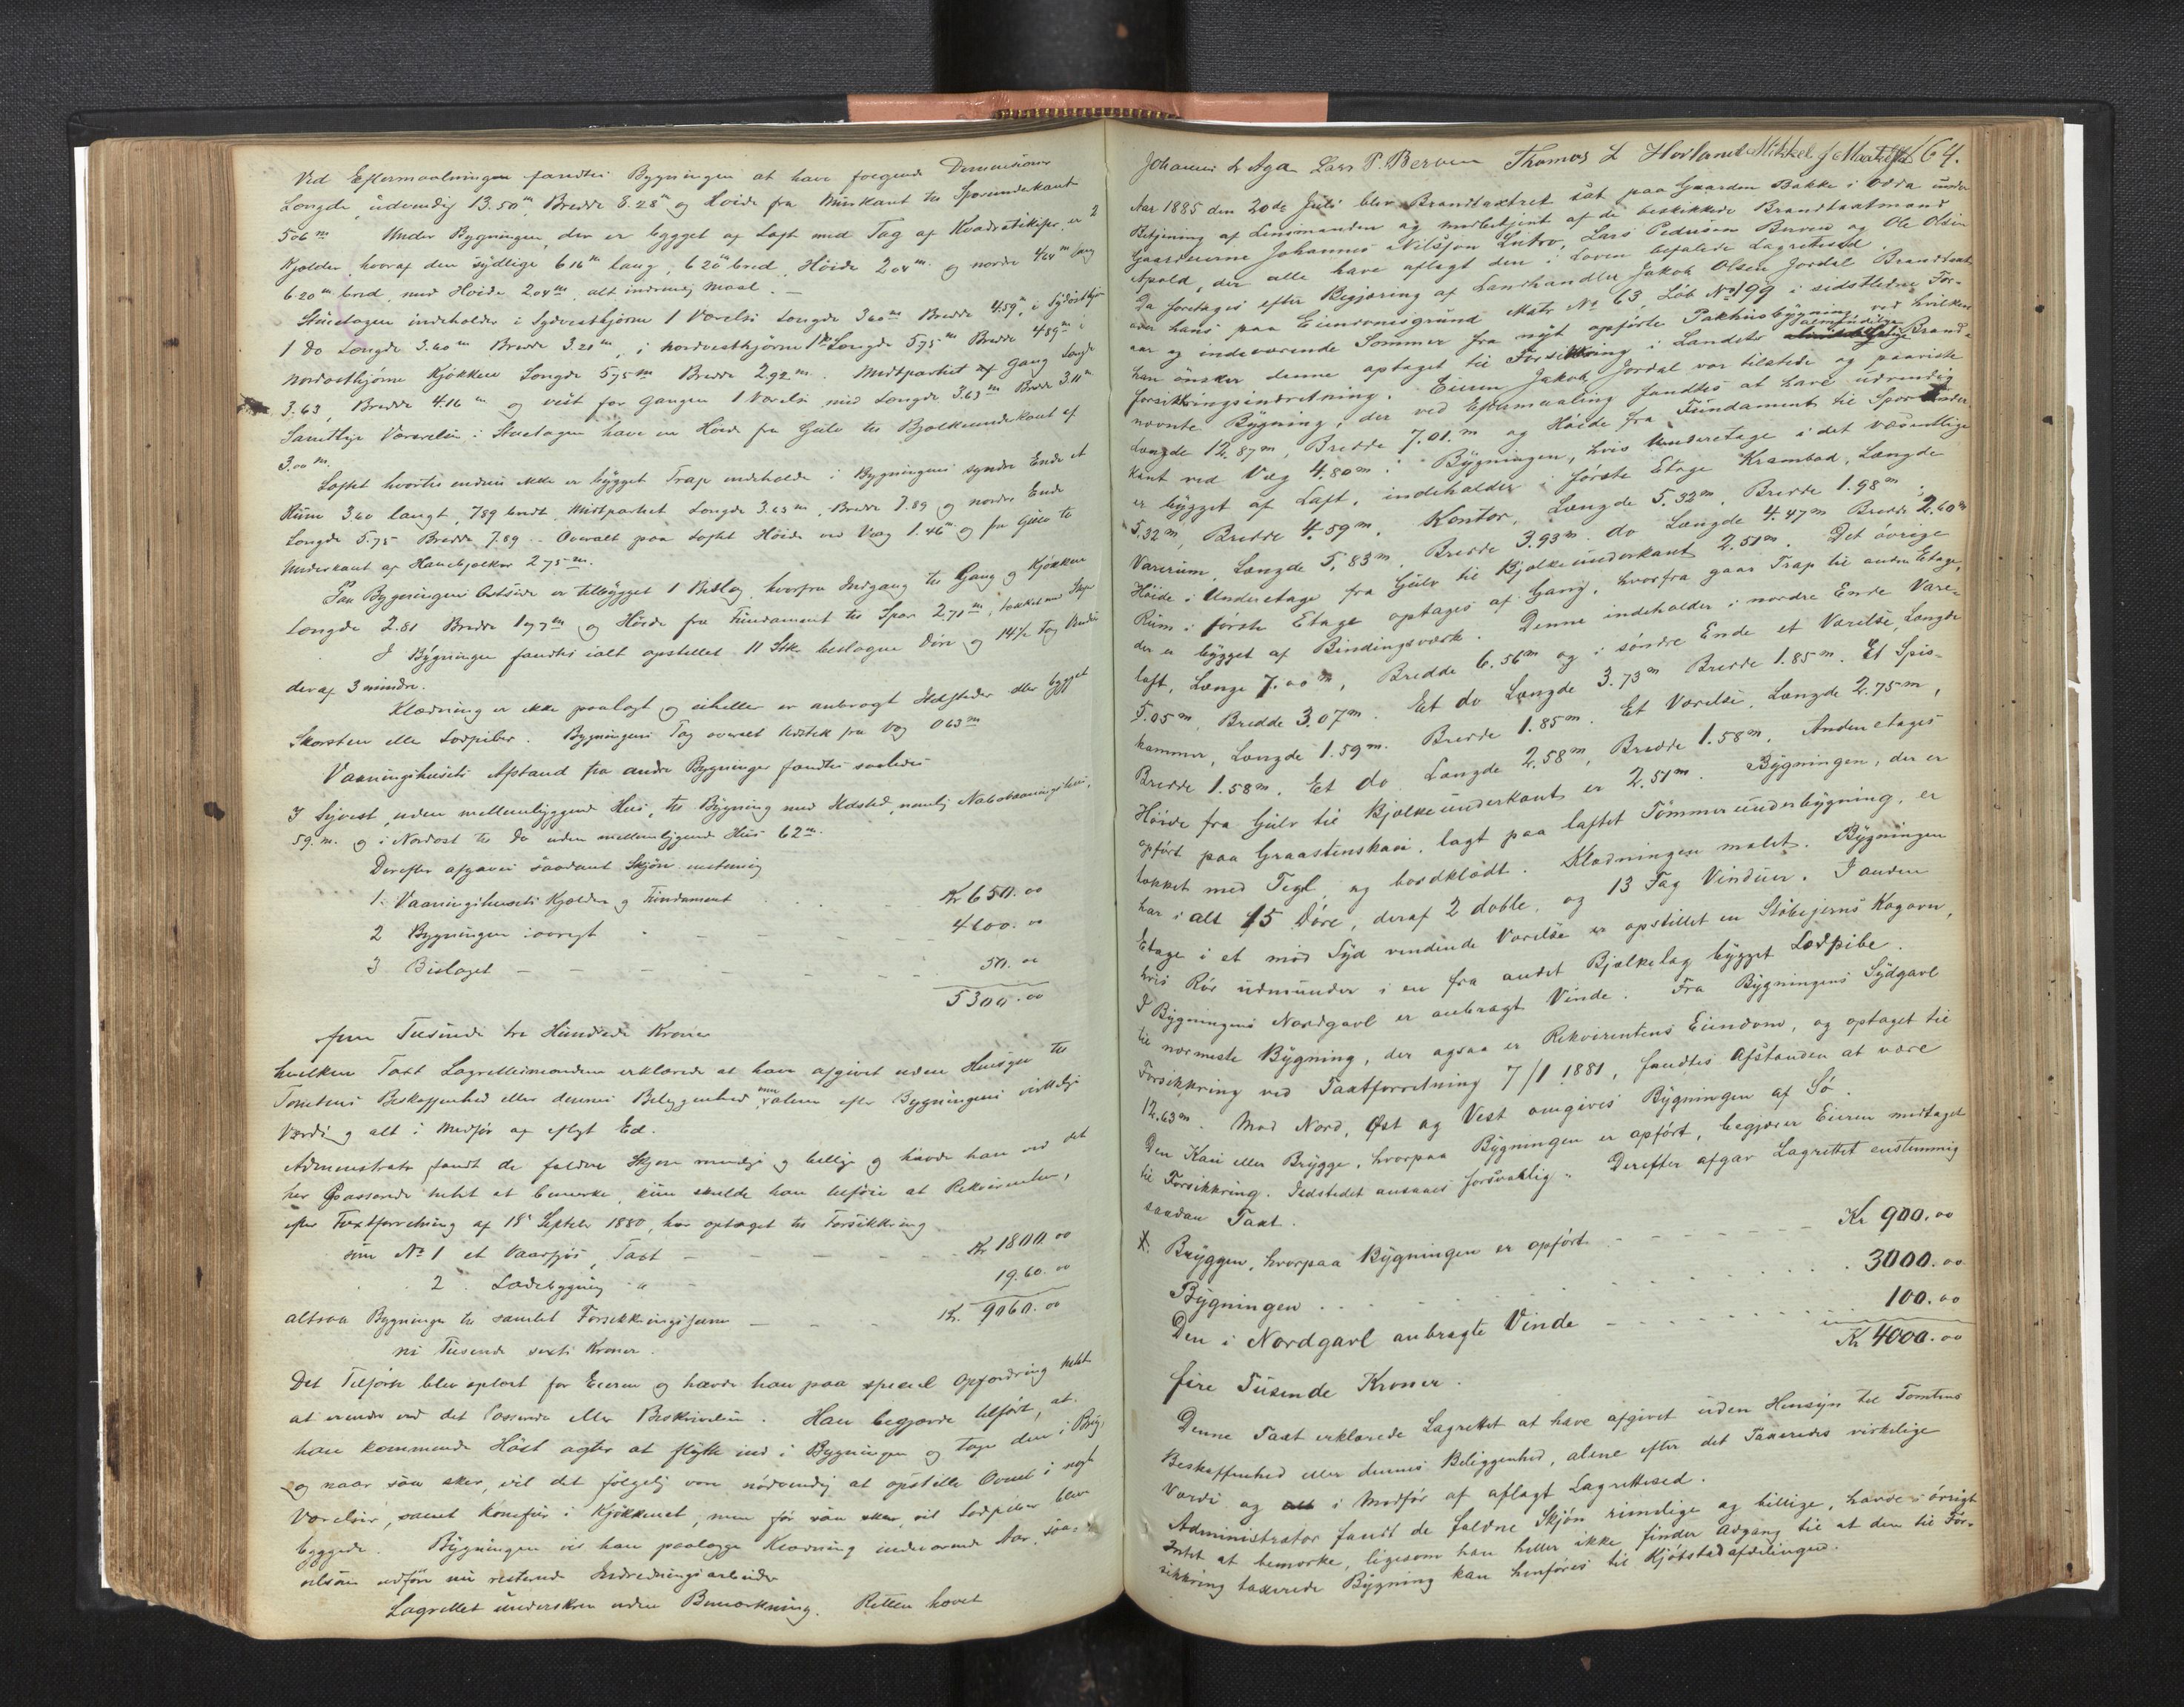 Ved Eftermaalningen fandtes Bygningen at have følgende Dimensioner
Længde, udvendig 13.50 m, Bredde 8.28 m og Høide fra Muurkant til Sperunderkant
5.06 m Under Bygningen, der er bygget af Laft med Tag af Kvadratskifer, er 2
Kjeldere, hvoraf den sydlige 6.16 m lang, 6.20 m bred, Høide 2.04 m og nordre 4.64 m lang
6.20 m bred, med Høide 2.04 m, alt indvendig Maal. —
Stuetagen indeholder i Sydvesthjørne 1 Værelse Længde 3.60 m Bredde 4.59, i Sydøsthjørne
1 do Længde 3.60 m Bredde 3.21 m, i Nordvesthjørne 1 do Længde 5.75 m Bredde 4.89 m i
Nordosthjørne Kjøkken Længde 5.75 m Bredde 2.92 m. Midtpartiet af Gang Længde
3.63, Bredde 4.16 m og vest for Gangen 1 Værelse med Længde 3.63 m Bredde 3.11 m
Samtlige Værelser i Stuetagen have en Høide fra Gulv til Bjælkeunderkant af
3.00 m.
Loftet hvortil endnu ikke er bygget Trap indeholder i Bygningens syndre Ende et
Rum 3.60 langt, 7.89 bredt, Midtpartiet Længde 3.63 m, Bredde 7.89 og nordre Ende
Længde 5.75 Bredde 7.89 — Overalt paa Loftet Høide ved Væg 1.46 m og fra Gulv til
Underkant af Hanebjælker 2.75 m.
Paa Bygningens Østside er tilbygget 1 Bislag, hvorfra Indgang til Gang og Kjøkken
Længde 2.81 Bredde 1.77 m og Høide fra Fundament til Spær 2.71 m, tækket med Skifer
I Bygningen fandtes ialt opstillet 11 Stk beslagne Døre og 14½ Fag Vinduer
deraf 3 mindre.
Klædning er ikke paalagt og eiheller er anbragt Ildsteder eller bygget
Skorsten eller Sodpiber. Bygningens Tag overalt Udstik fra Væg 0.63 m
Vaaningshusets Afstand fra andre Bygninger fandtes saaledes
I Syvest, uden mellemliggende Hus, til Bygning med Ildsted, nemlig Nabovaaningshus,
59. m. og i Nordost til do uden mellemliggende Hus 62 m.
Derefter afgaves saadant Skjøn enstemmig
1. Vaaningshusets Kjelder og Fundament Kr 650.00
2 Bygningen iøvrigt 4600.00
3 Bislaget 50.00
5300.00
fem Tusinde tre Hundrede Kroner
hvilken Taxt Lagrettesmændene erklærede at have afgivet uden Hensyn til
Tomtens Beskaffenhed eller dennes Beliggenhed, men alene efter Bygningens virkelige
Værdi og alt i Medfør af aflagt Ed.
Administrator fandt de faldne Skjøn rimelige og billige og havde han ved det
her Passerede intet at bemærke, kun skulde han tilføie at Rekvirenten,
efter Taxtforretning af 18 Septebr 1880, har optaget til Forsikkring
som No 1 et Vaarfjøs, Taxt Kr 1800.00
2 Ladebygning " 1960.00
altsaa Bygninger til samlet Forsikkringssum Kr. 9060.00
ni Tusinde sexti Kroner.
Det Tilførte blev oplæst for Eieren og havde han paa speciel Opfordring intet
at erindre ved det Passerede eller Beskrivelsen. Han begjærede tilført, at
han kommende Høst agter at flytte ind i Bygningen og tage den i Brug,
og naar saa sker, vil det følgelig være nødvendig at opstille Ovne i nogle
Værelser, samt Komfur i Kjøkkenet, men før saa sker, vil Sodpiber blive
byggede. Bygningen vil han paalægge Klædning indeværende Aar, saa-
velsom udføre nu resterende Indredningsarbeider
Lagrettet underskrev uden Bemærkning. Retten hævet
Johannes L Aga Lars P. Berven Thomas L Hovland Mikkel J Maakestad 64.
Aar 1885 den 20de Juli blev Brandtaxtret sat paa Gaarden Bakke i Odda under
Betjening af Lensmanden og medbetjent af de beskikkede Brandtaxtmænd
Gaardeierne Johannes Nilsson Lutro, Lars Pedersen Berven og Ole Olsen
Apold, der alle have aflagt den i Loven befalede Lagretteseed.
Da foretoges efter Begjæring af Landhandler Jakob Olsen Jordal Brandtaxt
over hans paa Eiendomsgrund Matr No 63, Løb No 199 i sidstledne For-
aar og indeværende Sommer fra nyt opførte Pakhusbygning, ved hvilken
han ønsker denne optaget til Forsikkring i Landets almindelige Brand-
forsikkringsindretning. Eieren Jakob Jordal var tilstede og paaviste
nævnte Bygning, der ved Eftermaaling fandtes at have udvendig
Længde 12.87 m, Bredde 7.01. m og Høide fra Fundament til Sperunder-
kant ved Væg 4.80 m. Bygningen, hvis Underetage i det væsentlige
er bygget af Laft, indeholder i første Etage Krambod, Længde
5.32 m, Bredde 4.59 m. Kontor, Længde 5.32 m, Bredde 1.98 m,
Varerum, Længde 5.83 m, Bredde 3.93 m. do Længde 4.47 m Bredde 2.60 m
Høide i Underetage fra Gulv til Bjælkeunderkant 2.51 m. Det øvrige
Rum i første Etage optages af Gang, hvorfra gaar Trap til anden Etage,
der er bygget af Bindingsværk. Denne indeholder i nordre Ende Vare-
loft, Længe 7.00 m, Bredde 6.56 m og i søndre Ende et Værelse, Længde
5.05 m, Bredde 3.07 m. Et do Længde 3.73 m Bredde 1.85 m. Et Spis-
kammer, Længde 1.59 m. Bredde 1.85 m. Et Værelse, Længde 2.75 m,
Bredde 1.58 m. Et do Længde 2.58 m, Bredde 1.58 m. Andenetages
Høide fra Gulv til Bjælkeunderkant er 2.51 m. Bygningen, der er
opført paa Graastenskai, lagt paa laftet Tømmerunderbygning, er
tækket med Tegl og bordklædt. Klædningen malet. Bygningen
har i alt 15 Døre, deraf 2 doble, og 13 Fag Vinduer. I anden
Etage i et mod Syd vendende Værelse er opstillet en Støbejerns Kogovn,
hvis Rør udmunder i en fra andet Bjælkelag bygget Sodpibe.
I Bygningens Nordgavl er anbragt Vinde. Fra Bygningens Sydgavl
til nærmeste Bygning, der ogsaa er Rekvirentens Eiendom, og optaget til
Forsikkring ved Taxtforretning 7/1 1881, fandtes Afstanden at være
12.63 m. Mod Nord, Øst og Vest omgives Bygningen af Sø.
Den Kai eller Brygge, hvorpaa Bygningen er opført, begjærer Eieren medtaget
til Forsikkring. Ildstedet ansaaes forsvarlig. Derefter afgav Lagrettet enstemmig
saadan Taxt.
Bryggen, hvorpaa Bygningen er opført Kr 900.00
Bygningen 3000.00
Den i Nordgavl anbragte Vinde 100.00
Kr 4000.00
fire Tusende Kroner.
Denne Taxt erklærede Lagrettet at have afgivet uden Hensyn til Tomtens
Beskaffenhed eller dennes Beliggenhed, alene efter det Taxeredes virkelige
Værdi og i Medfør af aflagt Lagretteseed.
Administrator fandt de faldne Skjøn rimelige og billige, havde i øvrigt
Intet at bemærke, ligesom han heller ikke finder Adgang til at den til For-
sikkring taxerede Bygning kan henføres til Kjøbstadafdelingen.